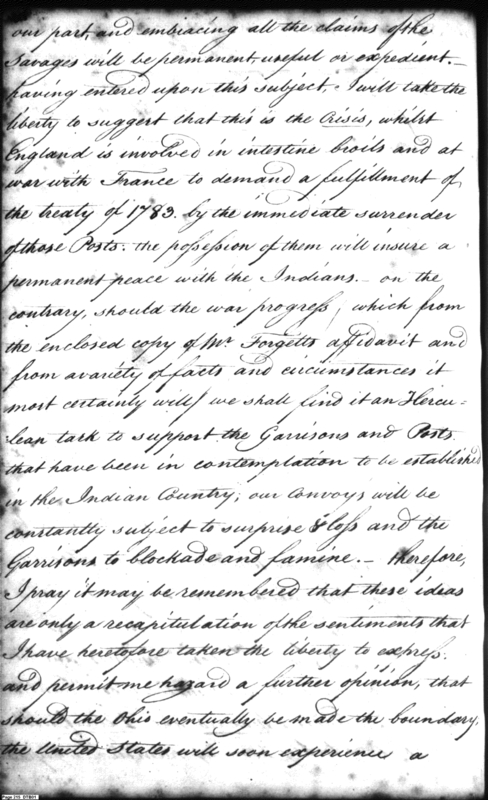 our part, and embracing all the claims of the
Savages will be permanent useful or expedient. —
having entered upon this subject, I will take the
liberty to suggest that this is the Crisis, whilst
England is involved in intestine broils and at
war with France to demand a fulfillment of,
the treaty of 1783. by the immediate surrender
of those Posts. the possession of them will insure a
permanent peace with the Indians. — on the
contrary, should the war progress, which from
the enclosed copy of Mr. Forgetts affidavit and
from a variety of facts and circumstances it
most certainly will) we shall find it an Hercu=
lean task to support the Garrisons and Posts
that have been in contemplation to be established
in the Indian Country; our convoys will be
constantly subject to surprise & loss and the
Garrisons to blockade and famine. — therefore,
I pray it may be remembered that these ideas
are only a recapitulation of the sentiments that
I have heretofore taken the liberty to express.
and permit me hazard a further opinion, that
should the Ohio eventually be made the boundary,
the United States will soon experience a